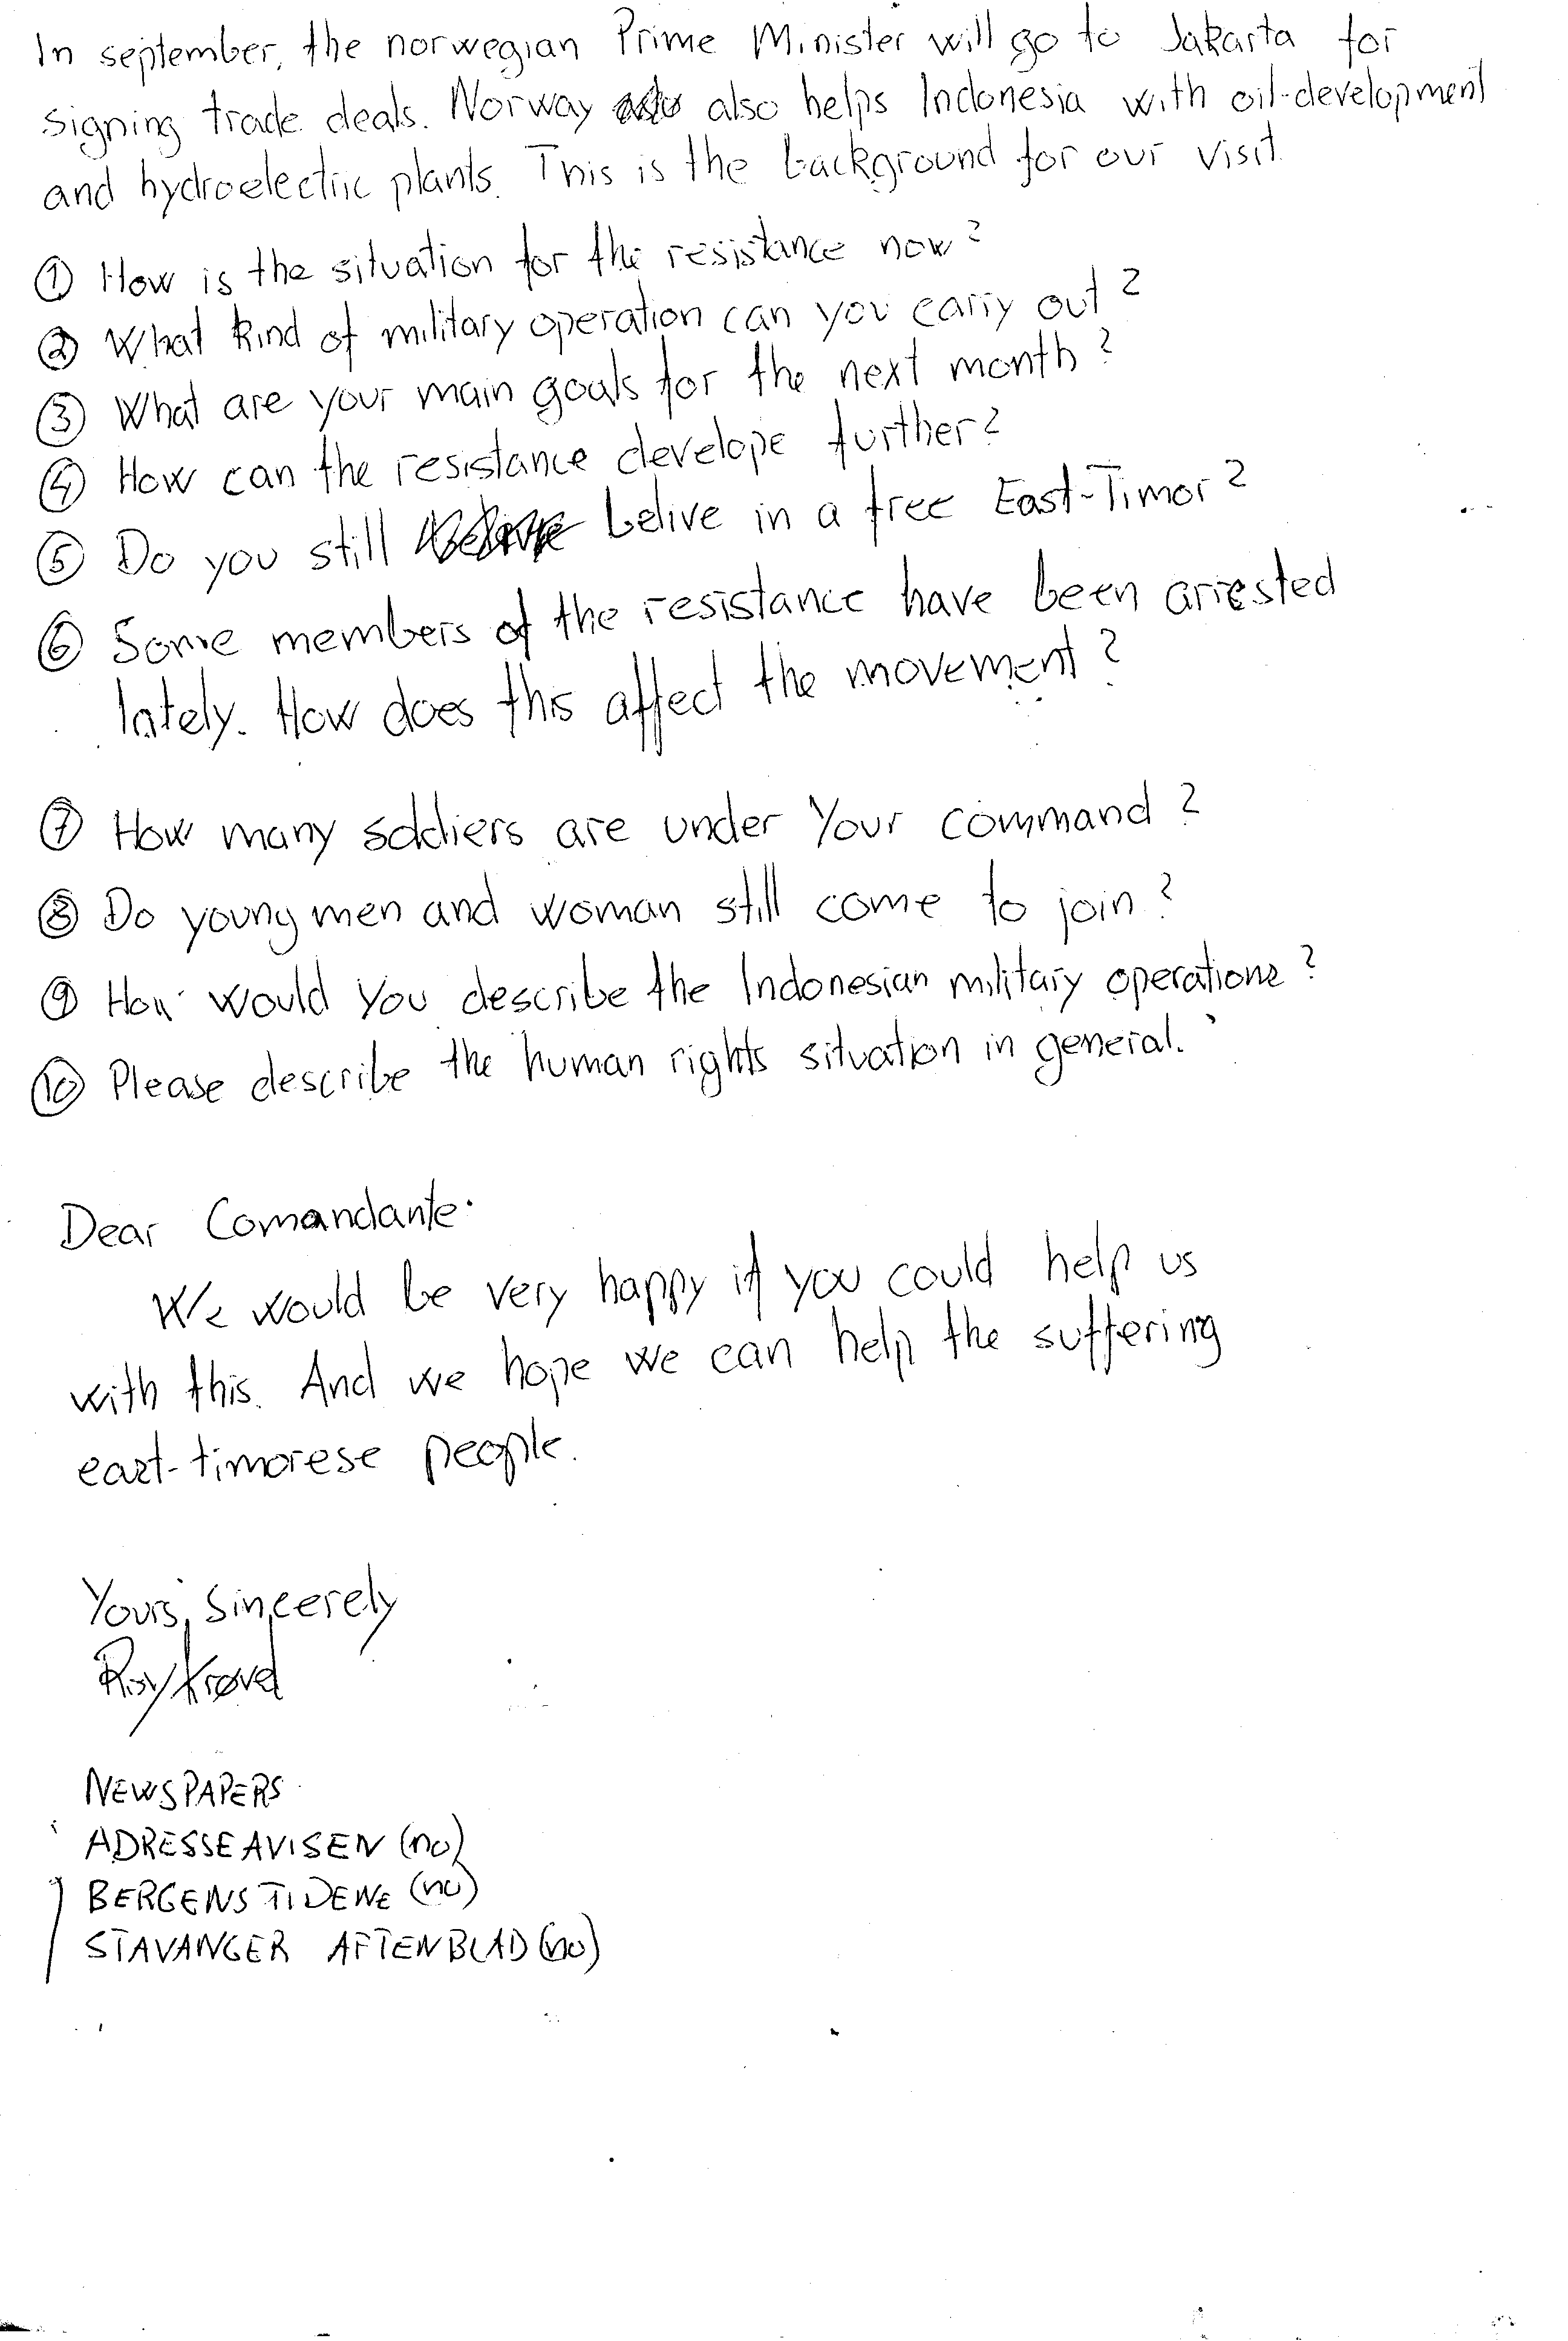 In september, the norwegian Prime Minister will go to Jakarta for
signing trade deals. Norway also helps Indonesia with oil-development
and hydroelectric plants. This is the background for our visit.
① How is the situation for the resistance now?
② What kind of military operation can you carry out?
③ What are your main goals for the next month?
④ How can the resistance develope further?
⑤ Do you still belive in a free East-Timor?
⑥ Some members of the resistance have been arrested
lately. How does this affect the movement?
⑦ How many soldiers are under Your command?
⑧ Do young men and woman still come to join?
⑨ How would you describe the Indonesian military operations?
⑩ Please describe the human rights situation in general.
Dear Comandante.
We would be very happy if you could help us
with this. And we hope we can help the suffering
east-timorese people.
Yours, sincerely
Roy Krøvel
NEWSPAPERS
ADRESSEAVISEN (no)
BERGENS TIDENE (no)
STAVANGER AFTENBLAD (no)